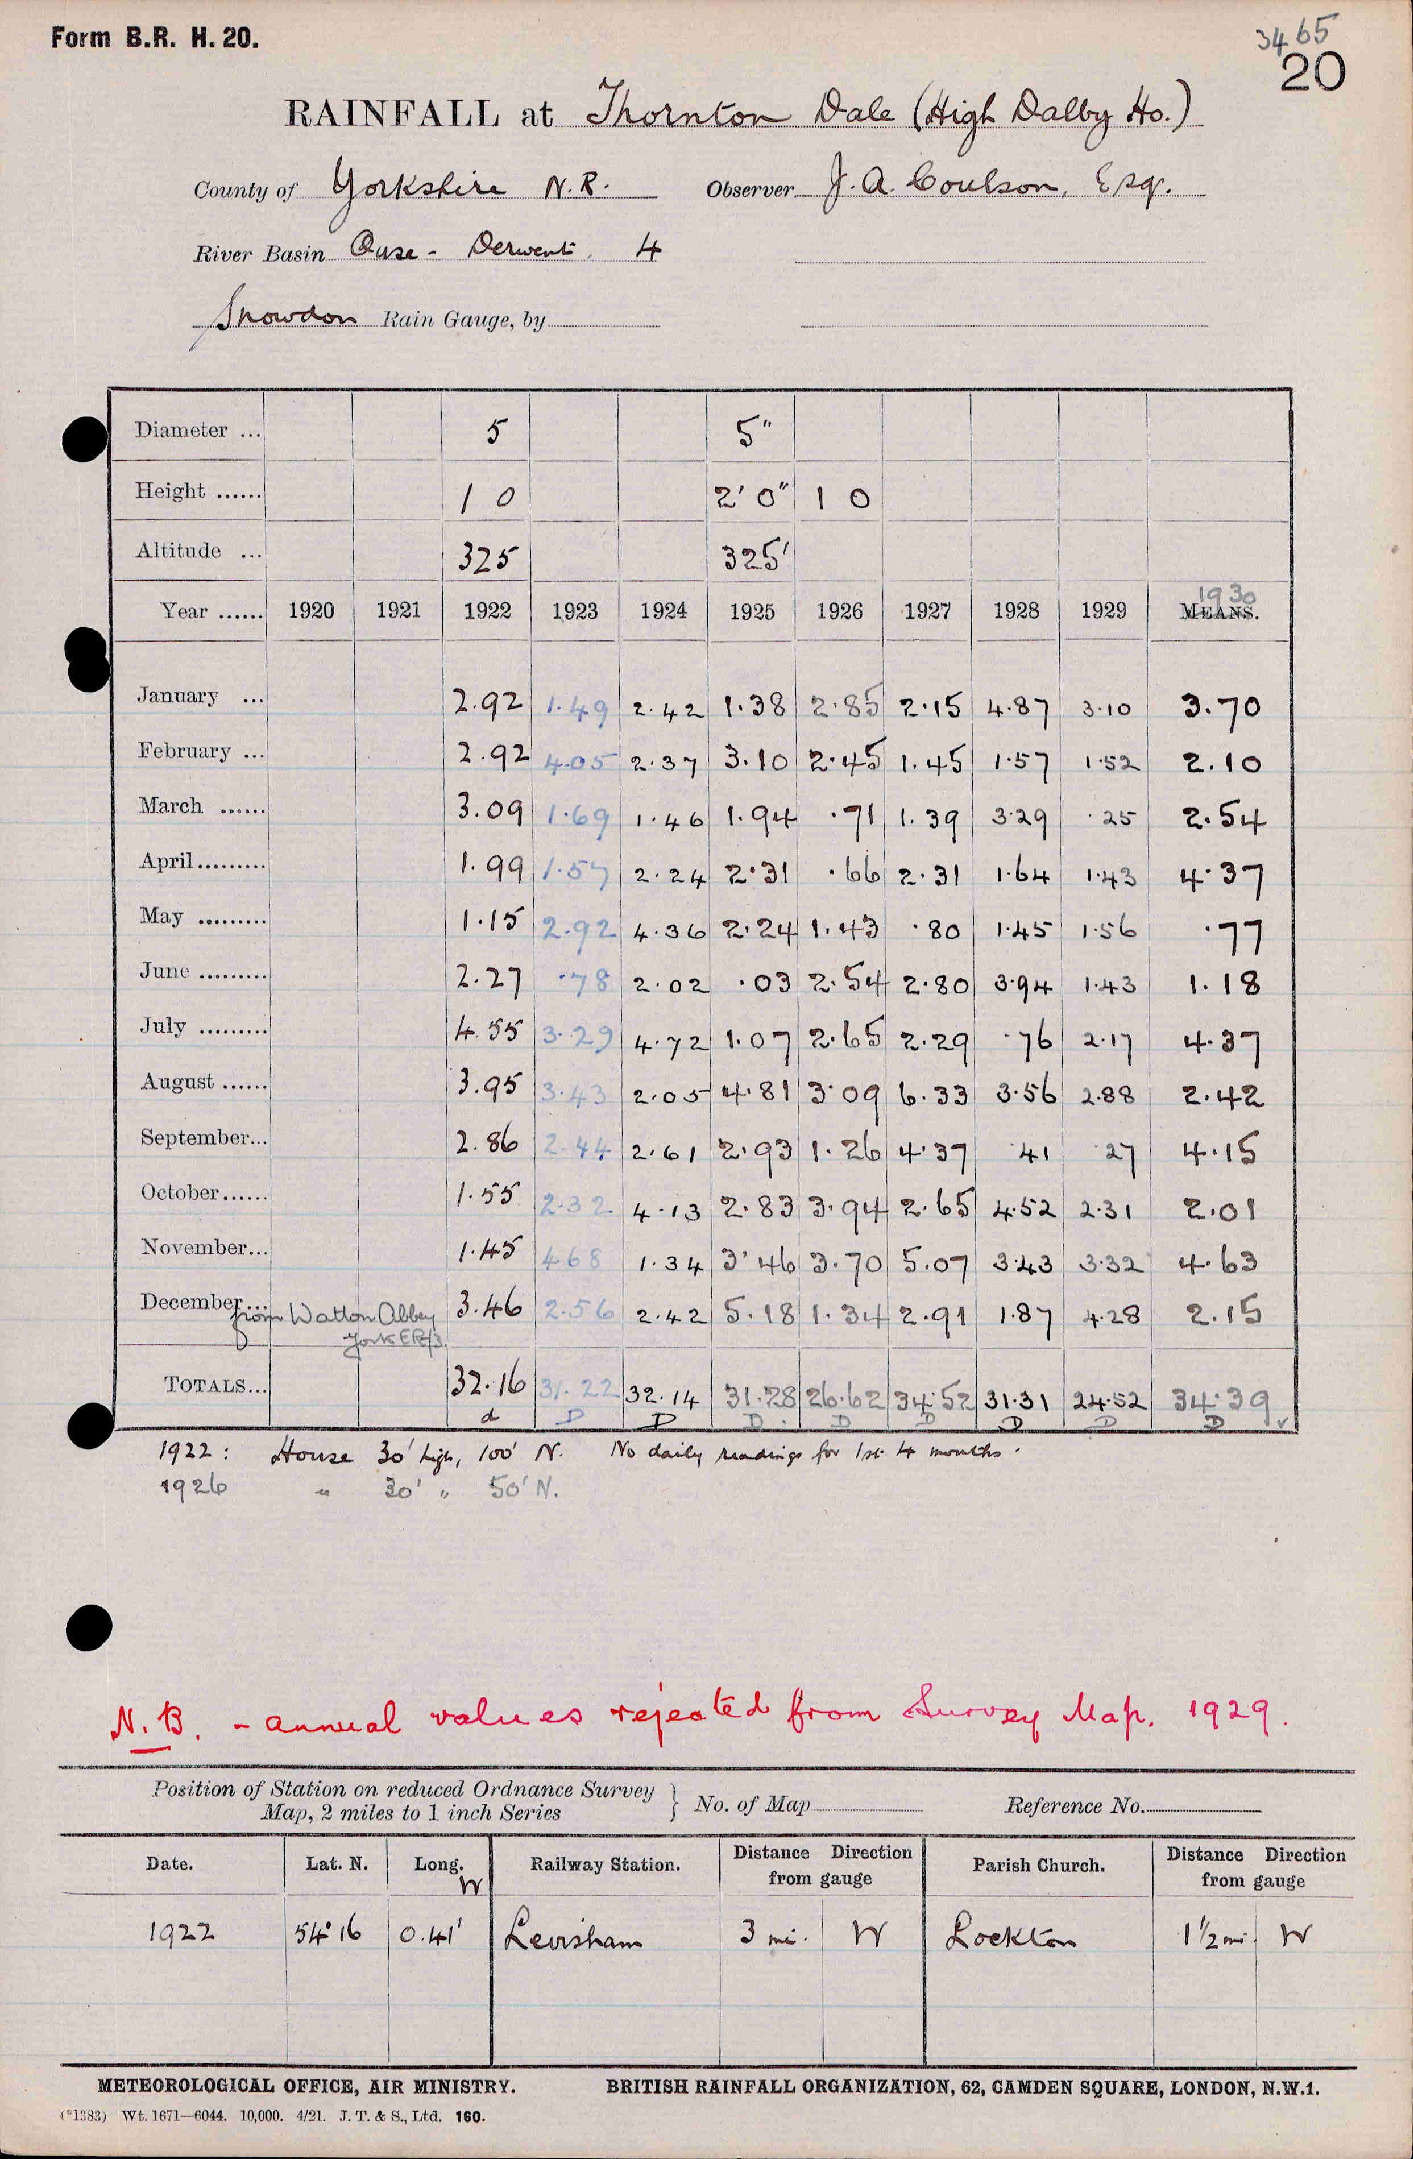 Form B.R. H. 20.
3465
20
RAINFALL at Thornton Dale (High Dalby Ho.)
County of Yorkshire N.R. Observer J. A. Coulson, Esq.
River Basin Ouse - Derwent. 4
Snowdon Rain Gauge, by
Diameter ... 5 5"
Height ...... 1 0 2' 0" 1 0
Altitude ... 325 325'
1930
Year ...... 1920 1921 1922 1923 1924 1925 1926 1927 1928 1929 MEANS.
January ... 2.92 1.49 2.42 1.38 2.85 2.15 4.87 3.10 3.70
February ... 2.92 4.05 2.37 3.10 2.45 1.45 1.57 1.52 2.10
March ...... 3.09 1.69 1.46 1.94 .71 1.39 3.29 .25 2.54
April......... 1.99 1.57 2.24 2.31 .66 2.31 1.64 1.43 4.37
May ......... 1.15 2.92 4.36 2.24 1.43 .80 1.45 1.56 .77
June ......... 2.27 .78 2.02 .03 2.54 2.80 3.94 1.43 1.18
July ......... 4.55 3.29 4.72 1.07 2.65 2.29 .76 2.17 4.37
August ...... 3.95 3.43 2.05 4.81 3.09 6.33 3.56 2.88 2.42
September... 2.86 2.44 2.61 2.93 1.26 4.37 .41 .27 4.15
October...... 1.55 2.32 4.13 2.83 3.94 2.65 4.52 2.31 2.01
November... 1.45 4.68 1.34 3.46 3.70 5.07 3.43 3.32 4.63
December... 3.46 2.56 2.42 5.18 1.34 2.91 1.87 4.28 2.15
from Watton Abbey
York ER/3
TOTALS... 32.16 31.22 32.14 31.28 26.62 34.52 31.31 24.52 34.39
d D D D D D D D D
1922: House 30' high, 100' N. No daily readings for 1st 4 months.
1926 " 30' " 50' N.
N.B. - annual values rejected from Survey Map. 1929.
Position of Station on reduced Ordnance Survey
Map, 2 miles to 1 inch Series } No. of Map Reference No.
Date. Lat. N. Long. W Railway Station. Distance Direction from gauge Parish Church. Distance Direction from gauge
1922 54° 16 0.41' Levisham 3 mi. W Lockton 1½ mi W
METEOROLOGICAL OFFICE, AIR MINISTRY. BRITISH RAINFALL ORGANIZATION, 62, CAMDEN SQUARE, LONDON, N.W.1.
(*1383) Wt. 1671—6044. 10,000. 4/21. J. T. & S., Ltd. 160.